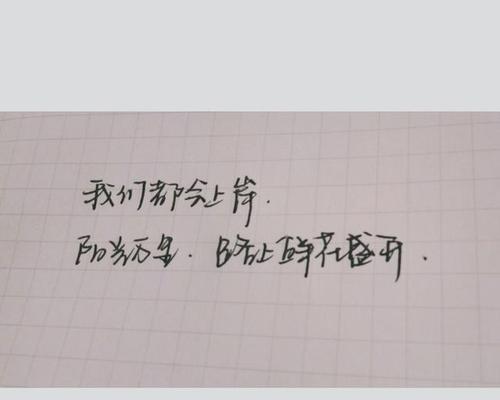 我们都会上岸.
阳光万里.路上鲜花盛开.